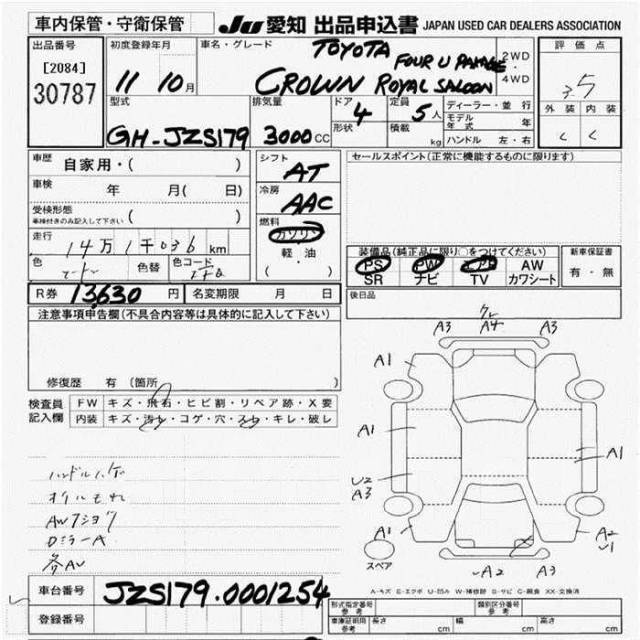 車内保管・守衛保管
JU 愛知 出品申込書 JAPAN USED CAR DEALERS ASSOCIATION
出品番号
[2084]
30787
初度登録年月
11 10月
車名・グレード
TOYOTA
CROWN ROYAL SALOON
2WD
・
4WD
評価点
3.5
外装 内装
C C
型式
GH-JZS179
排気量
3000cc
ドア 4
形状
定員 5人
積載 kg
ディーラー・並行
モデル年式 年
ハンドル 左・右
車歴 自家用・( )
車検 年 月( 日)
受検形態
車検付きのみ記入して下さい ( )
走行 14万1千036km
色
色替
色コード
シフト
AT
冷房
AAC
燃料
ガソリン
軽油
( ・ )
セールスポイント(正常に機能するものに限ります)
装備品(純正品に限り○をつけてください)
PS PW エアB AW
SR ナビ TV カワシート
新車保証書
有・無
R券 13,630円
名変期限 月 日
後日品
注意事項申告欄(不具合内容等は具体的に記入して下さい)
修復歴 有(箇所 )
検査員記入欄
FW キズ・飛石・ヒビ割・リペア跡・X要
内装 キズ・汚れ・コゲ・穴・スレ・キレ・破レ
ハンドルハゲ
オイルもれ
DミラーA
A3 A4 A3
A1 A1
A1 A1
U2
A3
A1
A2
A2 A3
スペア
A-キズ E-エクボ U-凹み W-補修跡 S-サビ C-腐食 XX-交換済
車台番号 JZS179-0001254
登録番号
形式指定番号
参考
類別区分番号
参考
車庫証明用
参考
長さ cm
幅 cm
高さ cm